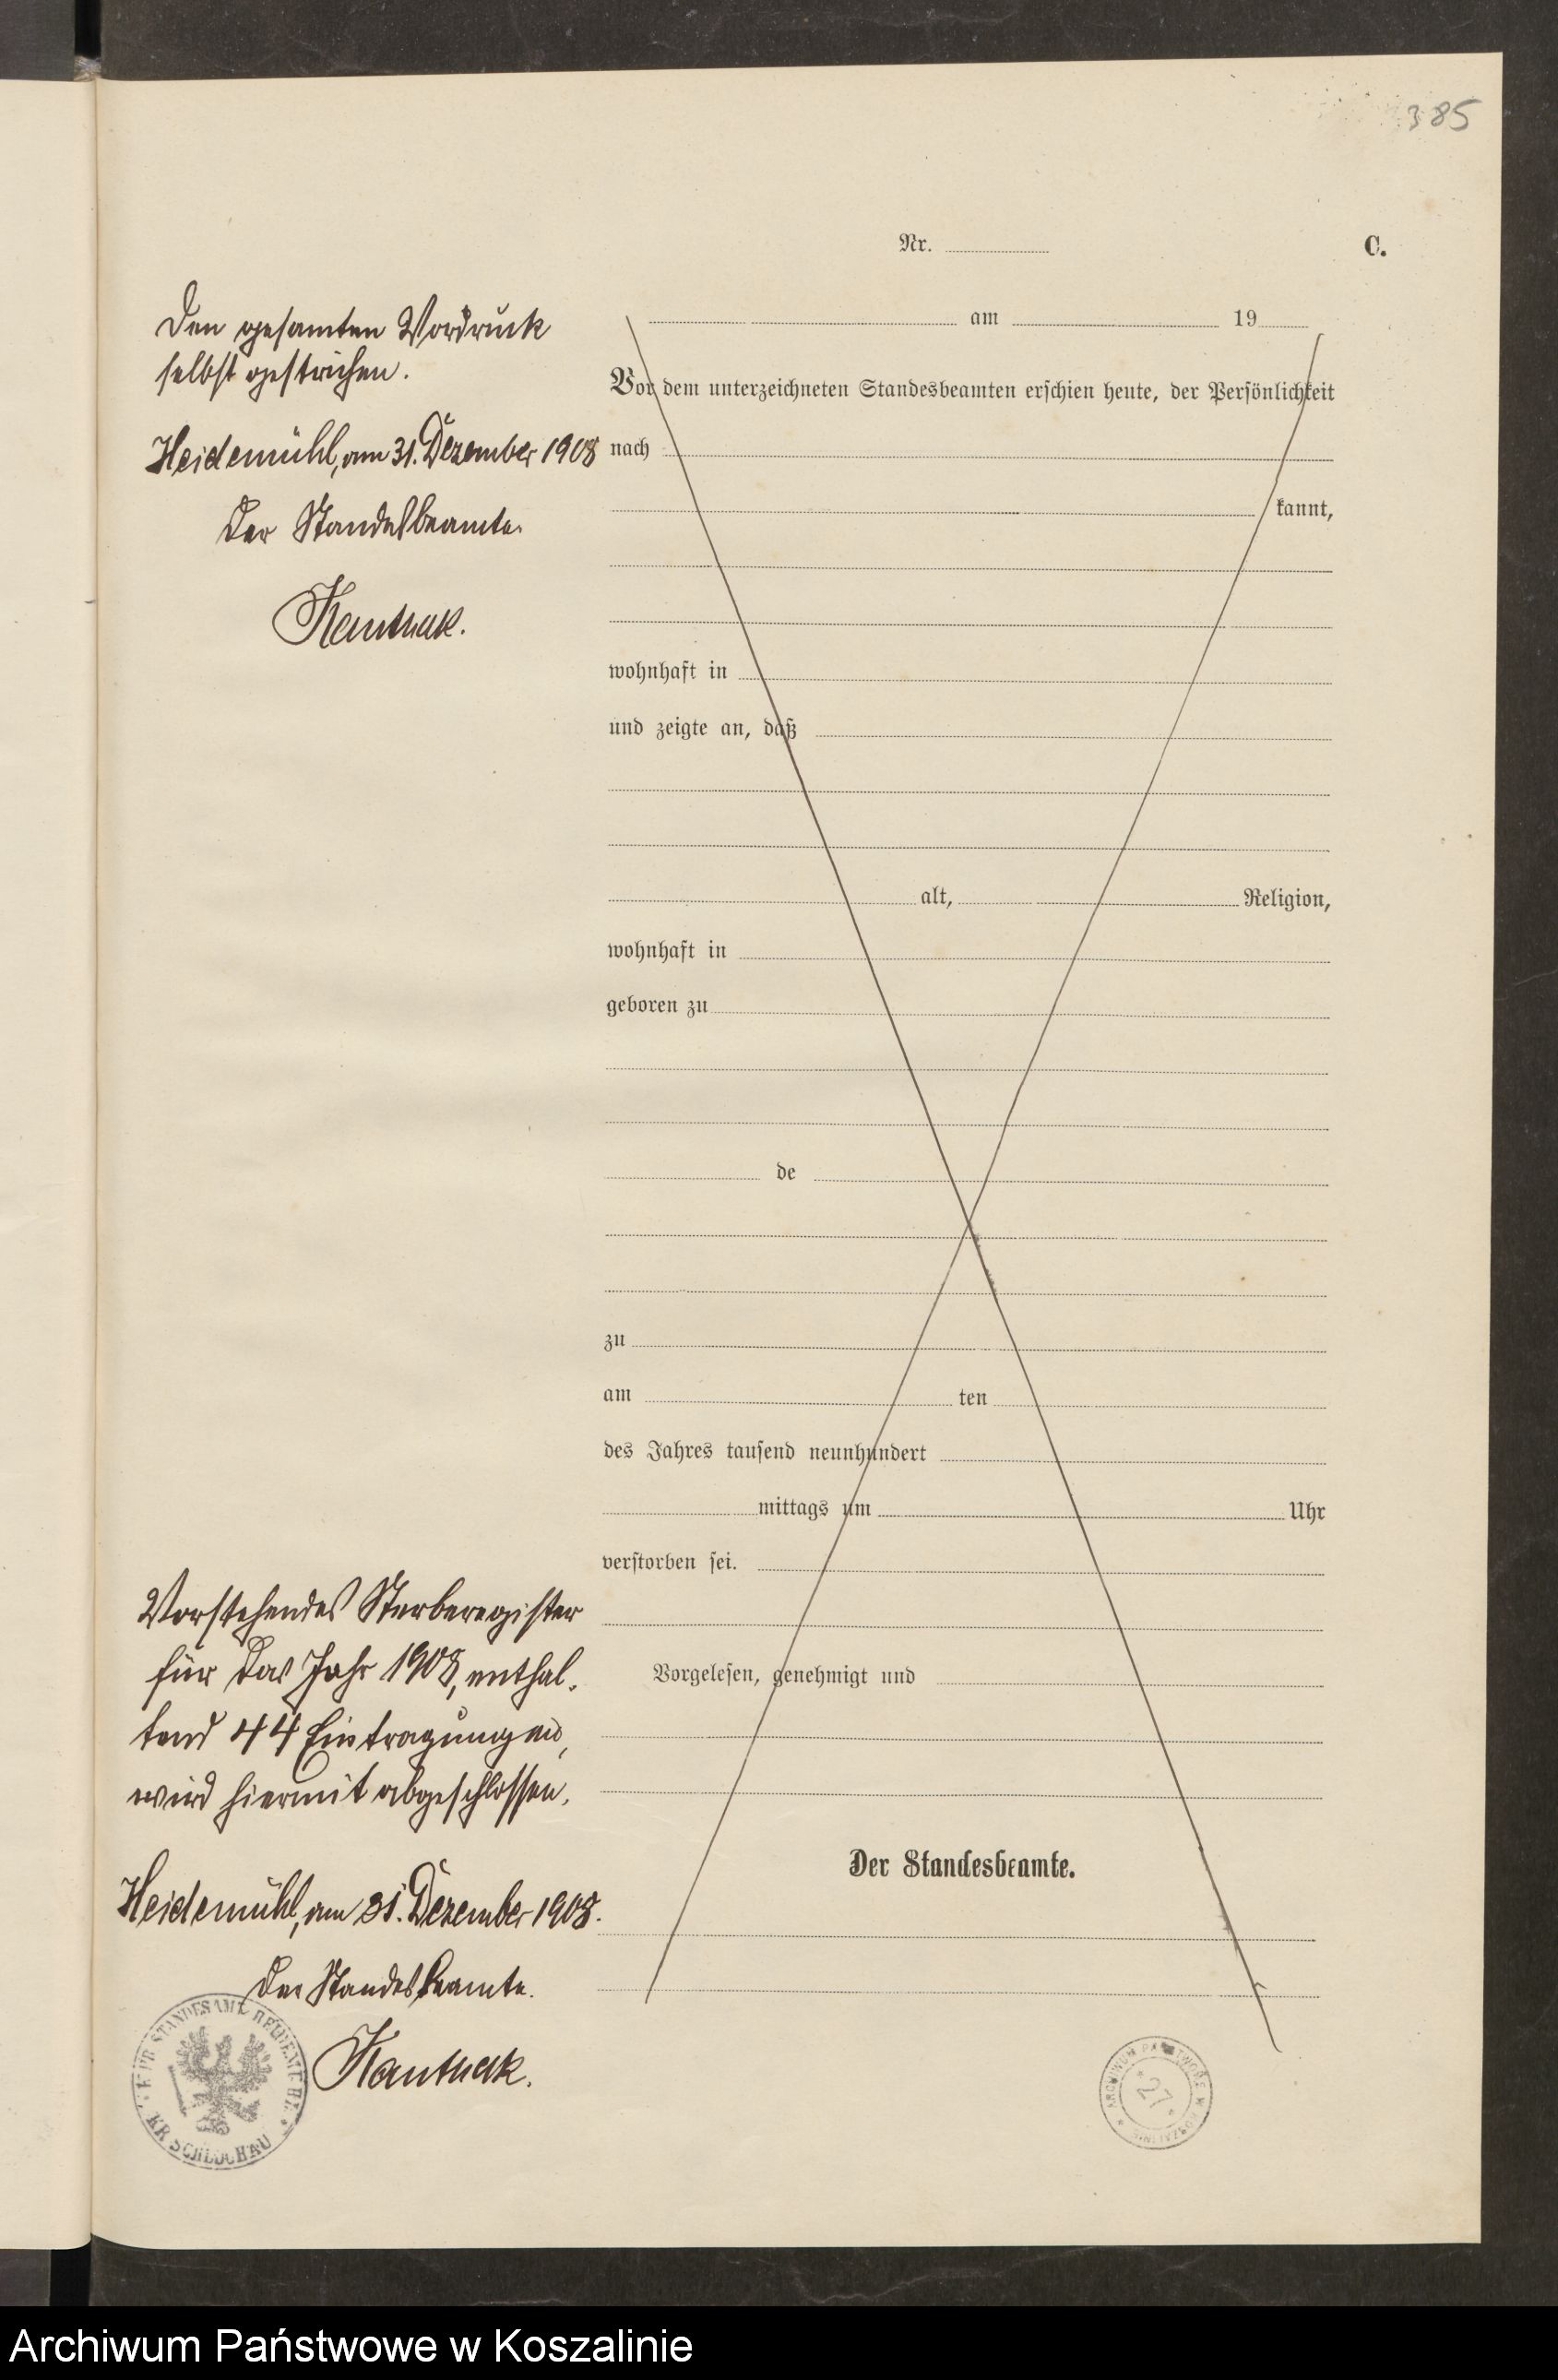 385
Nr.
C.
Den gesamten Vordruck
selbst gestrichen.
Heidemühl, am 31. Dezember 1908
Der Standesbeamte.
am 19
Vor dem unterzeichneten Standesbeamten erschien heute, der Persönlichkeit
nach
kannt,
wohnhaft in
und zeigte an, daß
alt, Religion,
wohnhaft in
geboren zu
de
zu
am ten
des Jahres tausend neunhundert
mittags um Uhr
verstorben sei.
Vorgelesen, genehmigt und
Der Standesbeamte.
Vorstehendes Sterberegister
für das Jahr 1908, enthal-
tend 44 Eintragungen,
wird hiermit abgeschlossen.
Heidemühl, am 31. Dezember 1908.
Der Standesbeamte.
KR SCHLOCHAU
ARCHIWUM PAŃSTWOWE W KOSZALINIE
27
Archiwum Państwowe w Koszalinie